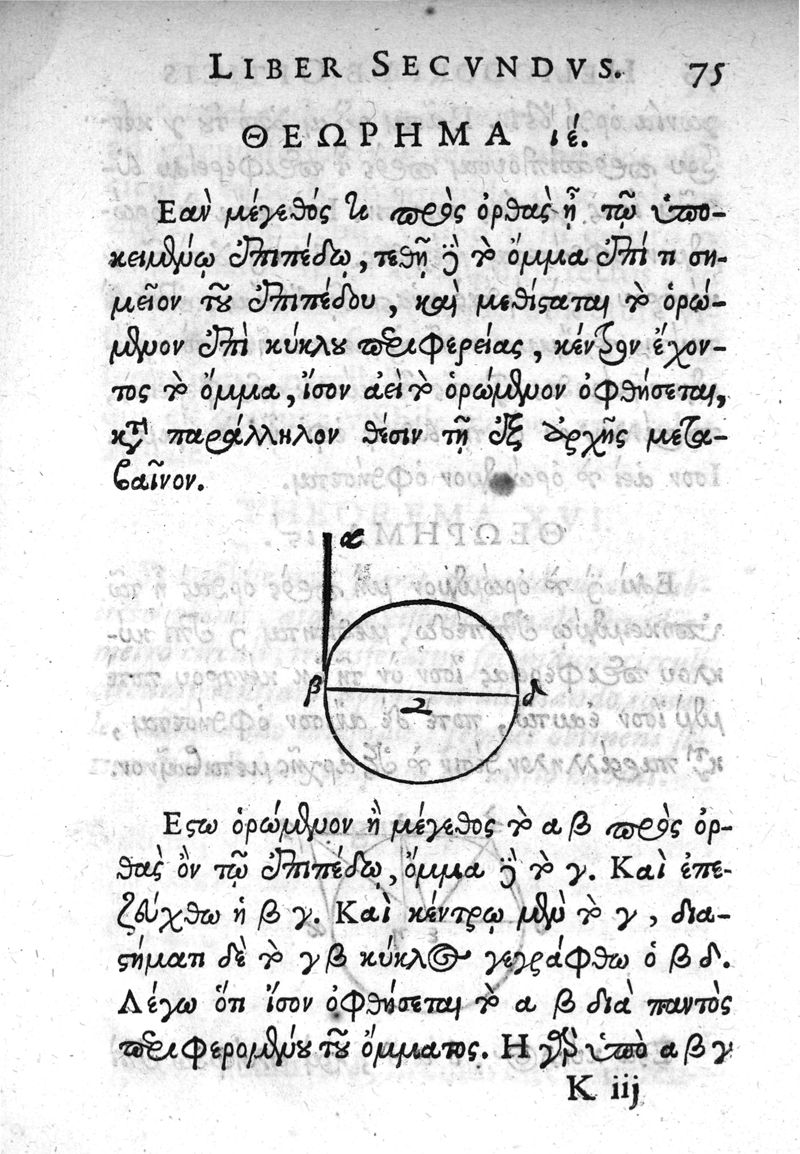 LIBER SECVNDVS. 75
ΘΕΩΡΗΜΑ ιέ.
Εαν μέγεθός τι πρὸς ὀρθὰς ᾖ τῷ ὑπο-
κειμένῳ ἐπιπέδῳ, τεθῇ δὲ τὸ ὄμμα ἐπί τι ση-
μεῖον τοῦ ἐπιπέδου, καὶ μεθίσταται τὸ ὁρώ-
μενον ἐπὶ κύκλου περιφερείας, κέντρον ἔχον-
τος τὸ ὄμμα, ἴσον ἀεὶ τὸ ὁρώμενον ὀφθήσεται,
κατὰ παράλληλον θέσιν τῇ ἐξ ἀρχῆς μετα-
βαῖνον.
α
β
γ
δ
Εστω ὁρώμενον ἢ μέγεθος τὸ α β πρὸς ὀρ-
θὰς ὂν τῷ ἐπιπέδῳ, ὄμμα δὲ τὸ γ. Καὶ ἐπε-
ζεύχθω ἡ β γ. Καὶ κέντρῳ μὲν τὸ γ, δια-
στήματι δὲ τὸ γ β κύκλος γεγράφθω ὁ β δ.
Λέγω ὅτι ἴσον ὀφθήσεται τὸ α β διὰ παντὸς
περιφερομένου τοῦ ὄμματος. Η γὰρ ὑπὸ α β γ
K iij